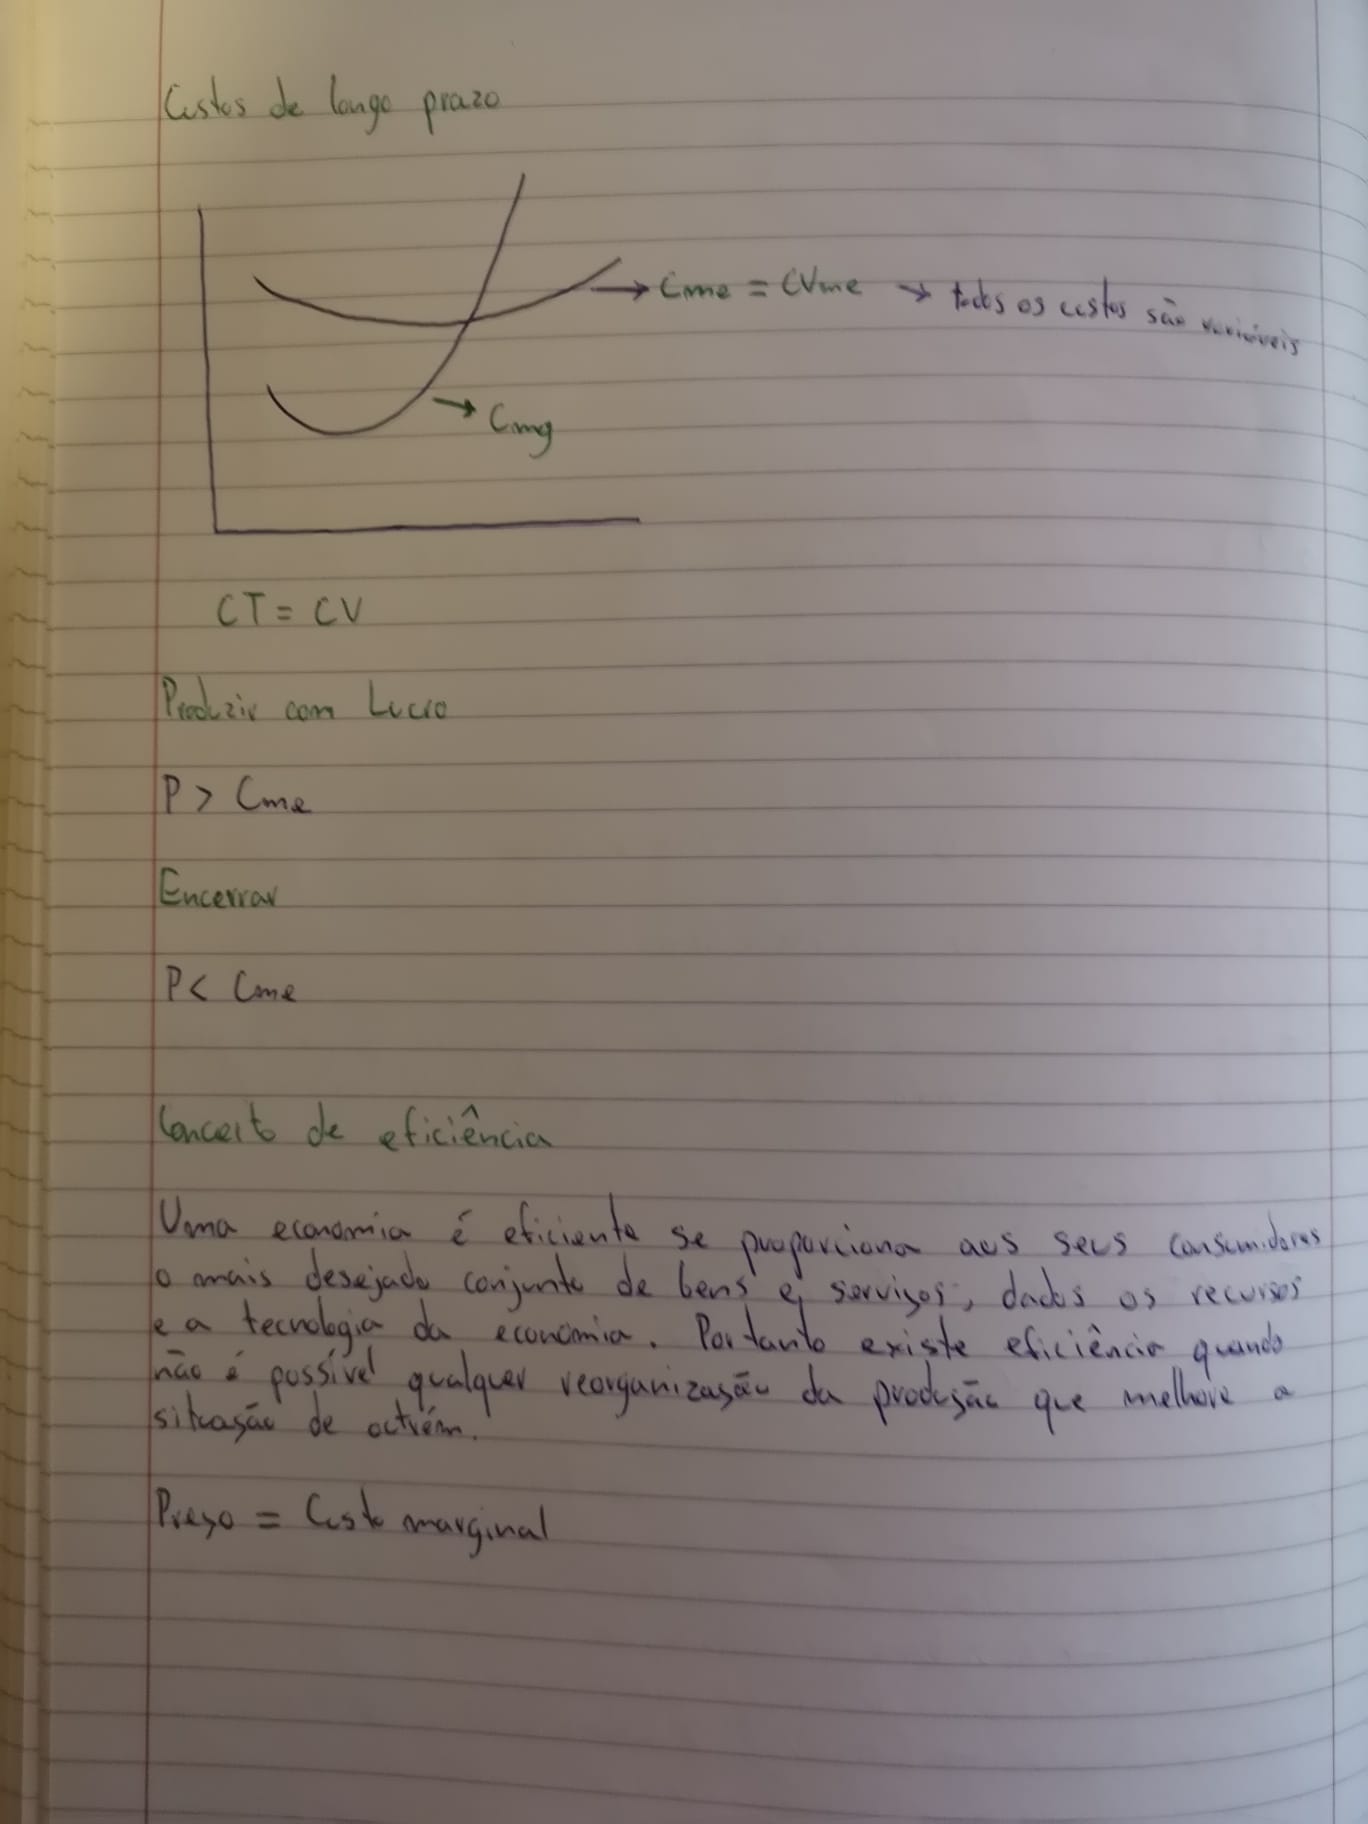 Custos de longo prazo
Cme = CVme → todos os custos são variáveis
→ Cmg
CT = CV
Produzir com Lucro
P > Cme
Encerrar
P < Cme
Conceito de eficiência
Uma economia é eficiente se proporciona aos seus consumidores
o mais desejado conjunto de bens e serviços, dados os recursos
e a tecnologia da economia. Portanto existe eficiência quando
não é possível qualquer reorganização da produção que melhore a
situação de outrém.
Preço = Custo marginal